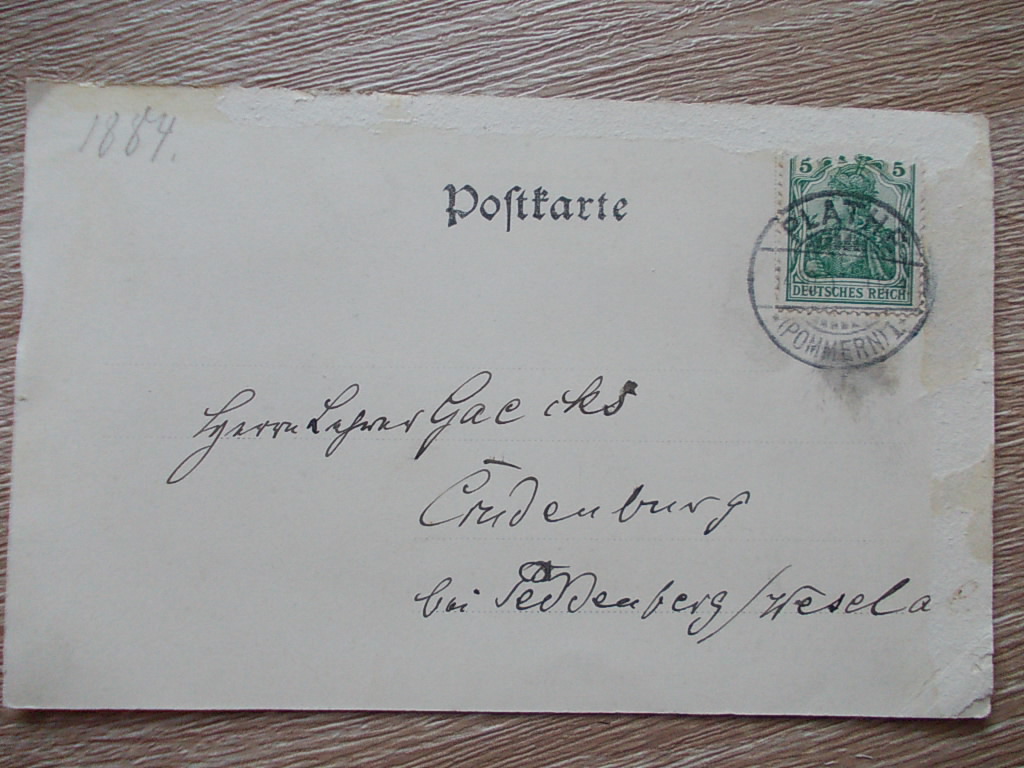 1884.
Postkarte
5 5
PLATHE
DEUTSCHES REICH
(POMMERN) 1
Herrn Lehrer Gaecks
Crudenburg
bei Peddenberg / Wesel a